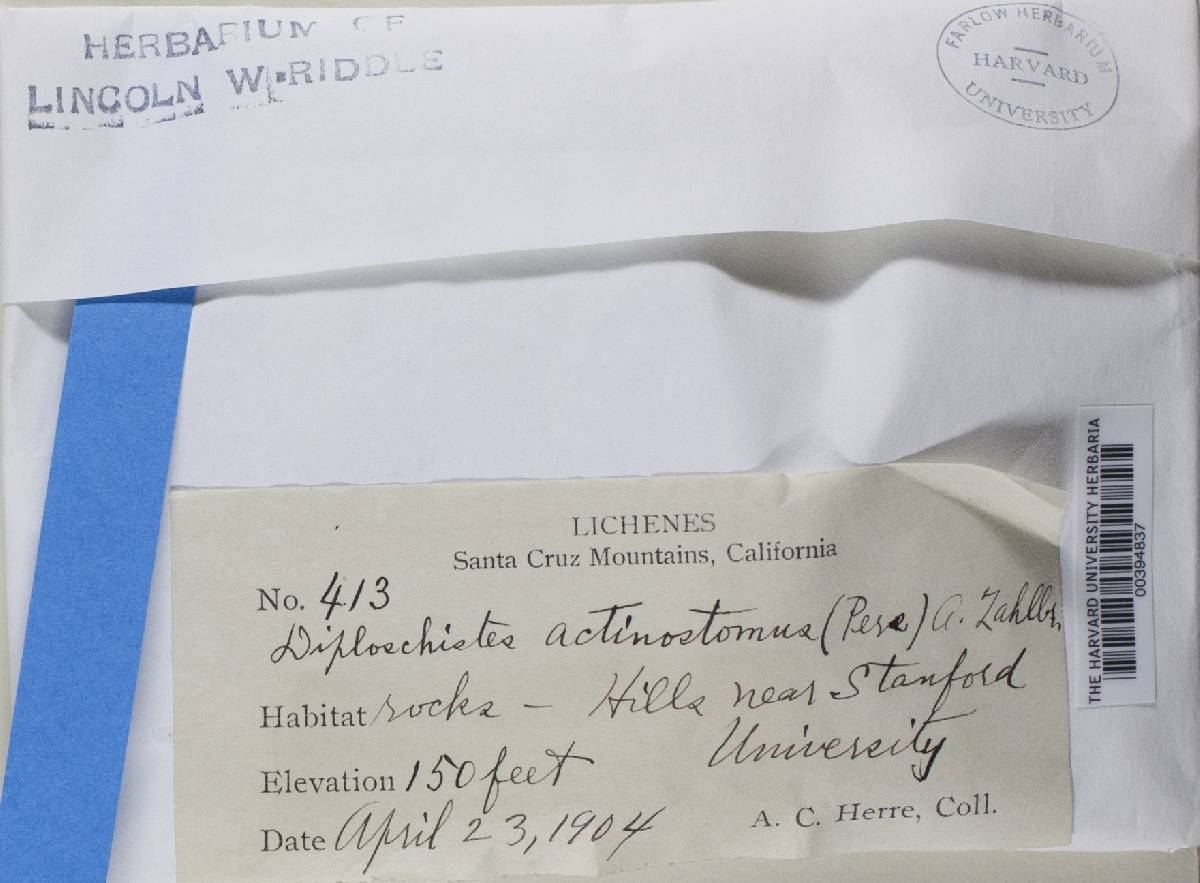 HERBARIUM OF
LINCOLN W. RIDDLE
FARLOW HERBARIUM
HARVARD
UNIVERSITY
LICHENES
Santa Cruz Mountains, California
No. 413
Diploschistes actinostomus (Pers) A. Zahlbr.
Habitat rocks – Hills near Stanford
University
Elevation 150 feet
Date April 23, 1904
A. C. Herre, Coll.
THE HARVARD UNIVERSITY HERBARIA
00394837